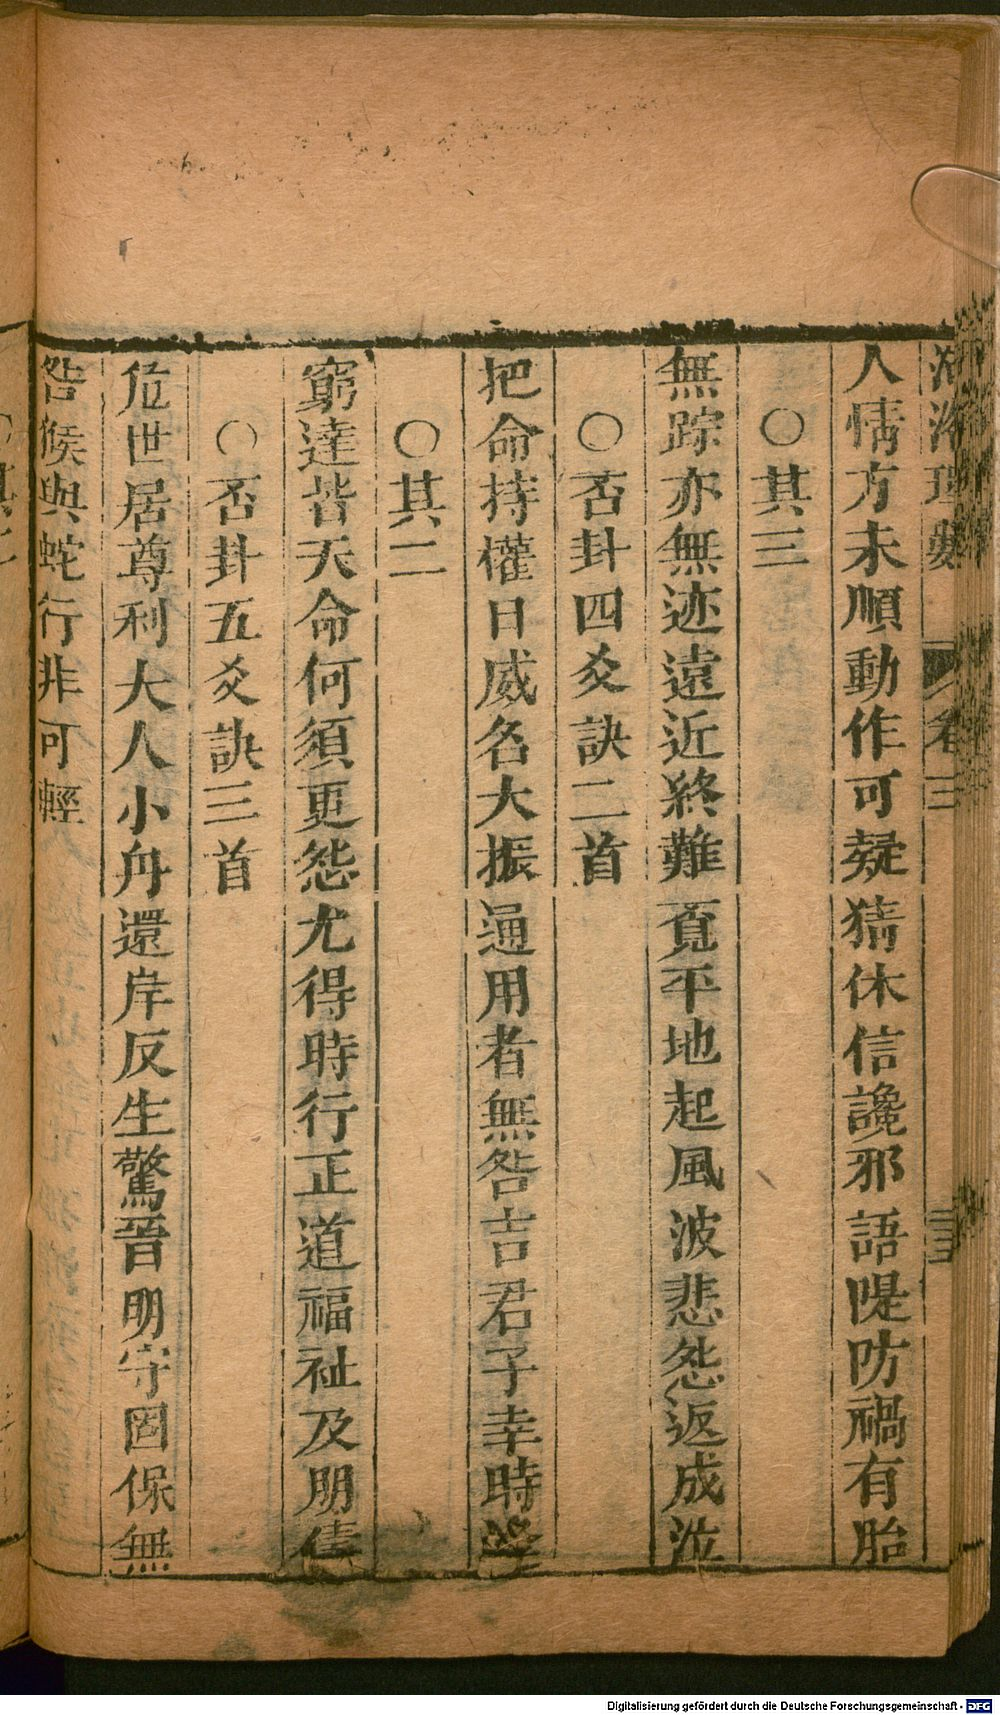 河洛理數
卷三
三五
人情方未順動作可疑猜休信讒邪語隄防禍有胎
〇其三
無踪亦無迹遠近終難覓平地起風波悲怨返成泣
〇否卦四爻訣二首
把命持權日威名大振通用者無咎吉君子幸時
〇其二
窮達皆天命何須更怨尤得時行正道福祉及朋儔
〇否卦五爻訣三首
危世居尊利大人小舟還岸反生驚晉明守固保無
咎猴與蛇行非可輕
〇其二
Digitalisierung gefördert durch die Deutsche Forschungsgemeinschaft - DFG